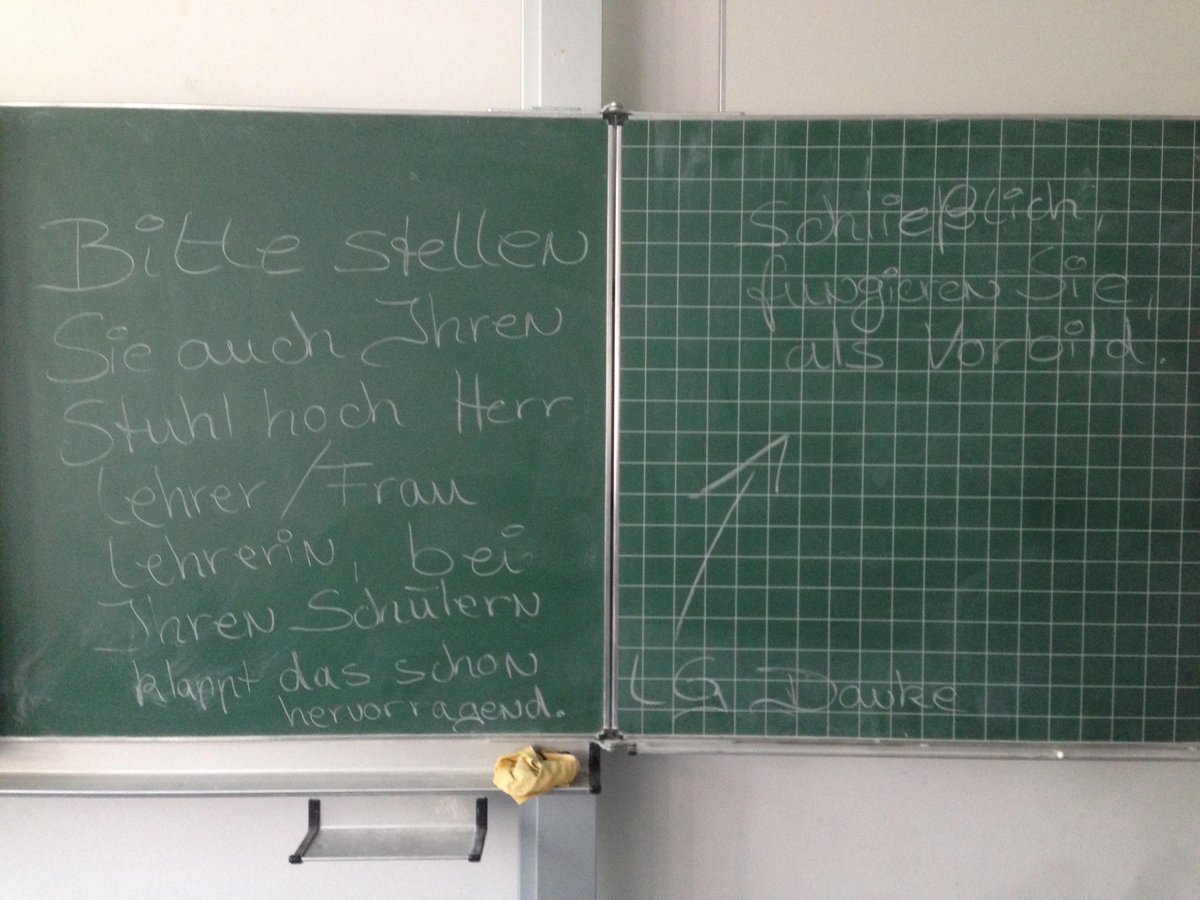 Bitte stellen
Sie auch Ihren
Stuhl hoch Herr
Lehrer / Frau
Lehrerin, bei
Ihren Schülern
klappt das schon
hervorragend.
Schließlich,
fungieren Sie,
als Vorbild.
LG Danke